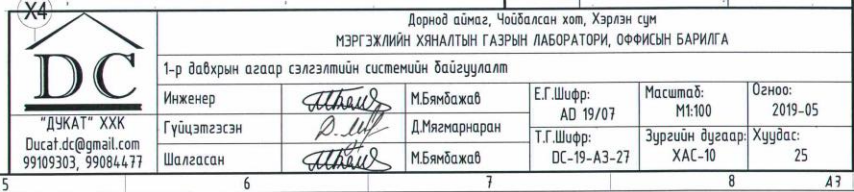 X4
DC
"ДУКАТ" ХХК
Ducat.dc@gmail.com
99109303, 99084477
Дорнод аймаг, Чойбалсан хот, Хэрлэн сум
МЭРГЭЖЛИЙН ХЯНАЛТЫН ГАЗРЫН ЛАБОРАТОРИ, ОФФИСЫН БАРИЛГА
1-р давхрын агаар сэлгэлтийн системийн байгуулалт
Инженер М.Бямбажав
Гүйцэтгэсэн Д.Мягмарнаран
Шалгасан М.Бямбажав
Е.Г.Шифр:
AD 19/07
Т.Г.Шифр:
DC-19-A3-27
Масштаб:
М1:100
Огноо:
2019-05
Зургийн дугаар:
ХАС-10
Хуудас:
25
5 6 7 8 A3